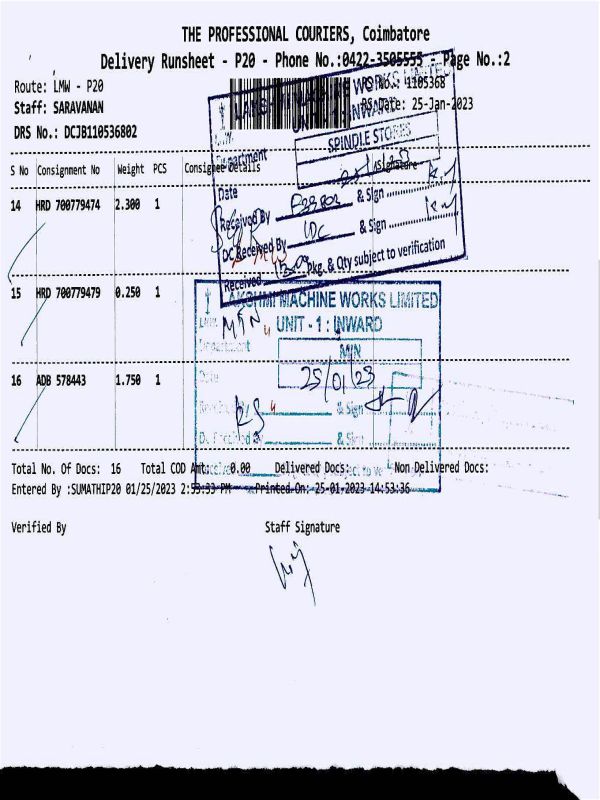 THE PROFESSIONAL COURIERS, Coimbatore
Delivery Runsheet - P20 - Phone No.:0422-3505555 - Page No.:2
Route: LMW - P20
No.: 1105368
Staff: SARAVANAN
RS Date: 25-Jan-2023
DRS No.: DCJB110536802
LAKSHMI MACHINE WORKS LIMITED
UNIT - 1 : INWARD
Department SPINDLE STORES
Date
Received By & Sign
DC Received By & Sign
Received Pkg. & Qty subject to verification
S No Consignment No Weight PCS Consignee Details Signature
14 HRD 700779474 2.300 1
15 HRD 700779479 0.250 1
LAKSHMI MACHINE WORKS LIMITED
UNIT - 1 : INWARD
MIN
Department MIN
Date 25/01/23
16 ADB 578443 1.750 1
& Sign
& Sign
Total No. Of Docs: 16 Total COD Amt: 0.00 Delivered Docs: Non Delivered Docs:
Entered By :SUMATHIP20 01/25/2023 2:53:33 PM Printed On: 25-01-2023 14:53:36
Verified By Staff Signature